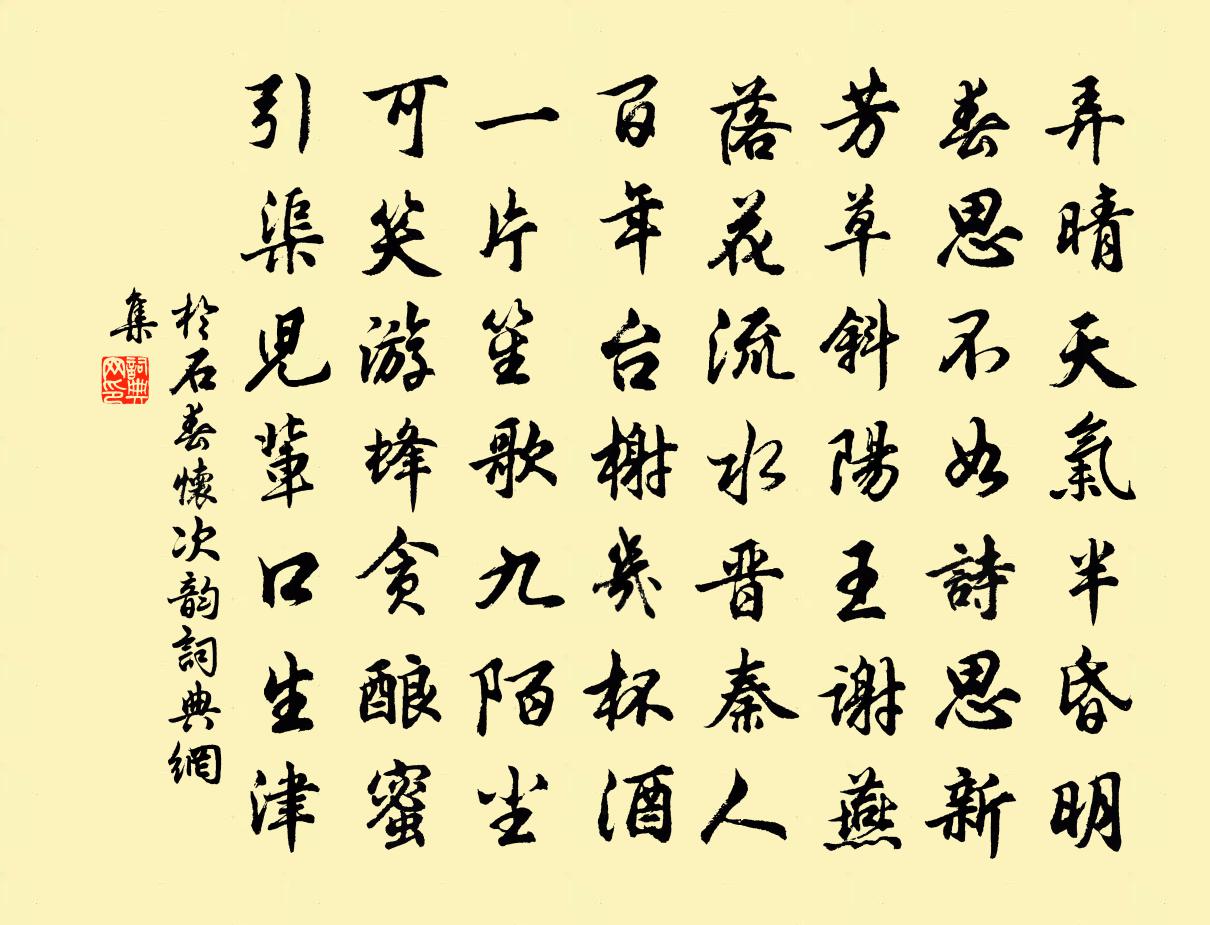 弄晴天氣半昏明
春思不如詩思新
芳草斜陽王謝燕
落花流水晋秦人
百年台榭幾杯酒
一片笙歌九陌尘
可笑游蜂貪酿蜜
引渠児輩口生津
於石春懷次韵詞典網
集
詞典
网印